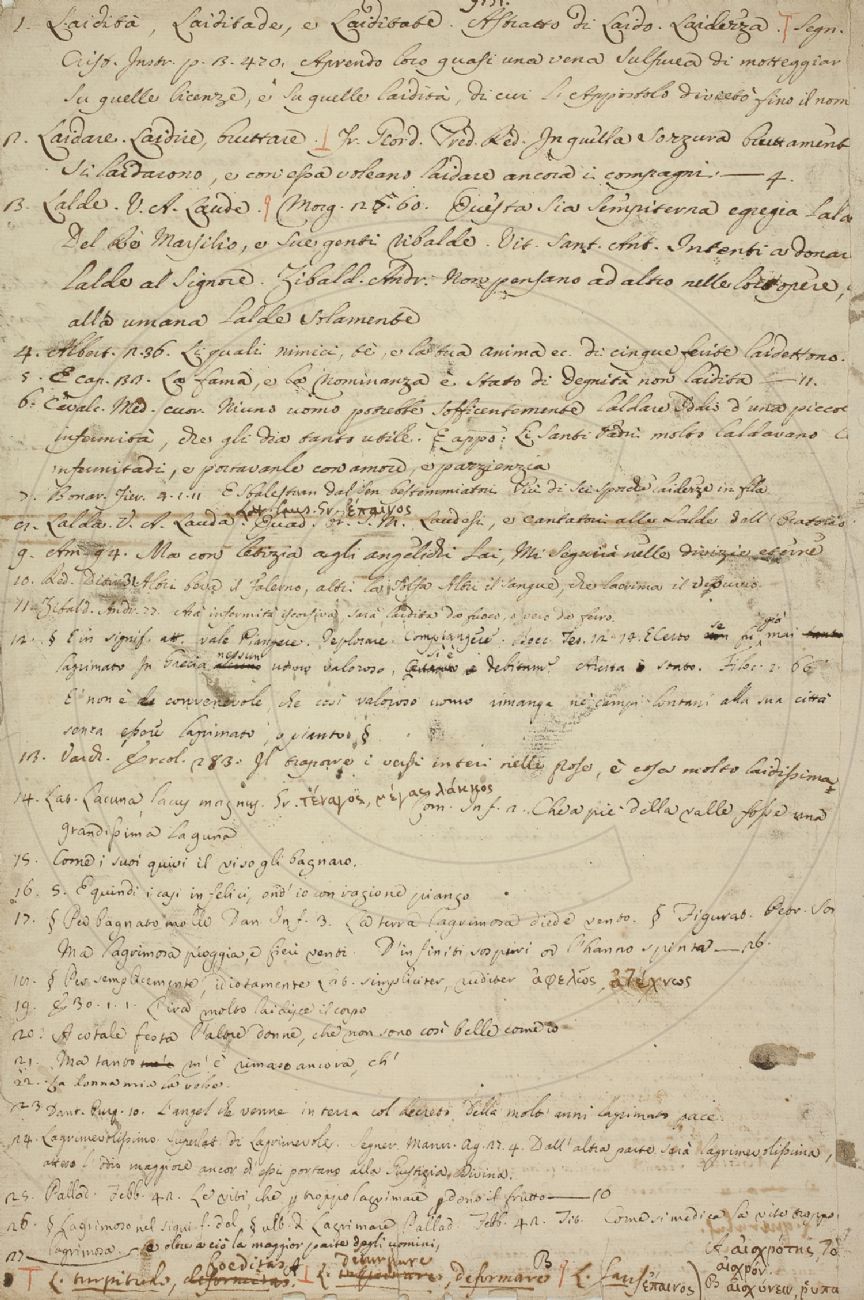 1. Laidità, Laiditade, e Laiditate. Astratto di Laido. Laidezza. T Segn.
Crist. Instr. p. 13. 470. Aprendo loro quasi una vena sulfurea di motteggiar
su quelle licenze, e su quelle laidità, di cui l'Appostolo divietò sino il nom
2. Laidare. Laidire, bruttare ⊥ Fr. Giord. Pred. Red. In quella sozzura bruttament
si laidarono, e con essa voleano laidare ancora i compagni. — 4.
13. Lalde. V. A. Laude ϙ Morg. 25. 60. Questa sia sempiterna egregia Lald
Del Re Marsilio, e sue genti ribalde. Vit. Sant. Ant. Intenti a donar
Lalde al Signore. Zibald. Andr. Non pensano ad altro nelle loro opere,
alla umana Lalde solamente
4. Albert. 2. 36. Li quali nimici, te, e la tua anima ec. di cinque ferite laidettono.
5. E cap. 33. La fama, e la Nominanza e stato di degnità non laidita — 11.
6. Cavalc. Med. cuor. Niuno uomo potrebbe sofficentemente laldare Iddio d'una piccol
infermità, che gli dia tanto utile. E appò: Li Santi Padri molto laldavano l
infermitadi, e portavanle con amore, e pazzienzia
7. Bonar. Fier. 4. 1. 11 E sbalestran dal sen bestemmiatri Vie di sei sporche laidezze in fila
Lat. laus. Gr. ἔπαινος
8. Lalda. V. A. Lauda. Quad. Or. S. M. Laudesi, e cantatori alle Lalde dell' Oratorio
9. Am. 94. Ma con letizia agli angelichi Lai, Mi seguia nelle divizie eterne
10. Red. Ditir. Altri beva il Falerno, altri la Tolfa Altri il sangue, che lacrima il Vesuvio.
11. Zibald. Andr. 77. Ora infermità sarà laidita da fuoco, o vero da ferro.
12. § E in signif. att. vale Piangere. Deplorare. Compiangere. Bocc. Tes. 12. 14. E certo se fu già mai
lagrimato In Grecia nessun uomo valoroso, si è debitam. Arcita stato. Filoc. 2. 66
E' non è convenevole, che così valoroso uomo rimanga ne' campi lontani alla sua città
senza essere lagrimato, o pianto §
13. Varch. Ercol. 283. Il traporre i versi interi nelle Prose, è cosa molto laidissima.
14. Lat. Lacuna, lacus magnus. Gr. τέναγος, μέγας λάκκος Com. Inf. 2. Ch'a piè della valle fosse una
grandissima laguna
15. Come i suoi quivi il viso gli bagnaro.
16. 5. E quindi i casi infelici, ond' io con ragione piango
17. § Per bagnato molle Dan. Inf. 3. La terra lagrimosa diede vento. § Figurat. Petr. Son
Ma lagrimosa pioggia, e fieri venti D'infiniti sospiri or l'hanno spinta — 26.
18. § Per semplicemente, idiotamente Lat. simpliciter, ruditer ἀφελῶς, ἀτέχνως
19. 30. 1. 1. L'ira molto laidisce il corpo
20. A cotale festa l'altre donne, che non sono così belle come io
21. Ma tanto m' è rimaso ancora, ch'
22. La donna mia la volse.
23 Dant. Purg. 10. L'angel che venne in terra col decreto Della molt' anni lagrimata pace.
24. Lagrimevolissimo. Superlat. di Lagrimevole. Segner. Mann. Ag. 27. 4. Dall' altra parte sarà lagrimevolissima,
atteso l'odio maggiore ancor ch' essi portano alla Giustizia Divina.
25. Pallad. Febb. 42. Le viti, che troppo lagrimare perdono il frutto — 10
26. § Lagrimoso nel signif. del § ult. di Lagrimare Pallad. Febb. 42. Tit. Come si medica la vite troppo
lagrimosa.
27. se oltre a ciò la maggior parte degli uomini,
T L. turpitudo, foeditas, A ⊥ L. deturpare, deformare B ϙ L. laus ἔπαινος) A αἰσχρότης, τὸ
αἰσχρόν.
B αἰσχύνειν, ῥυπα